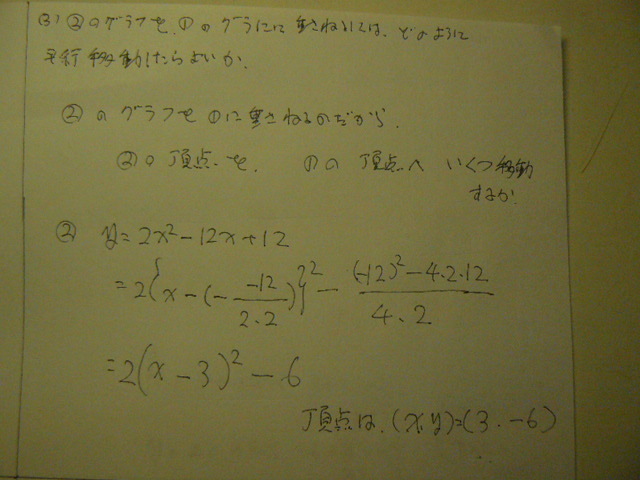 (3) ②のグラフを、①のグラフに重ねるには、どのように
平行移動したらよいか.
②のグラフを①に重ねるのだから、
②の頂点を、 ①の頂点へ いくつ移動
するか
② y=2x²-12x+12
=2{x-(-\frac{-12}{2・2})}²-\frac{(-12)²-4・2・12}{4・2}
=2(x-3)²-6
頂点は、(x,y)=(3.-6)